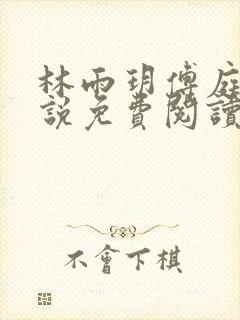 林雨玥傅庭
說免費閱讀
不會下棋